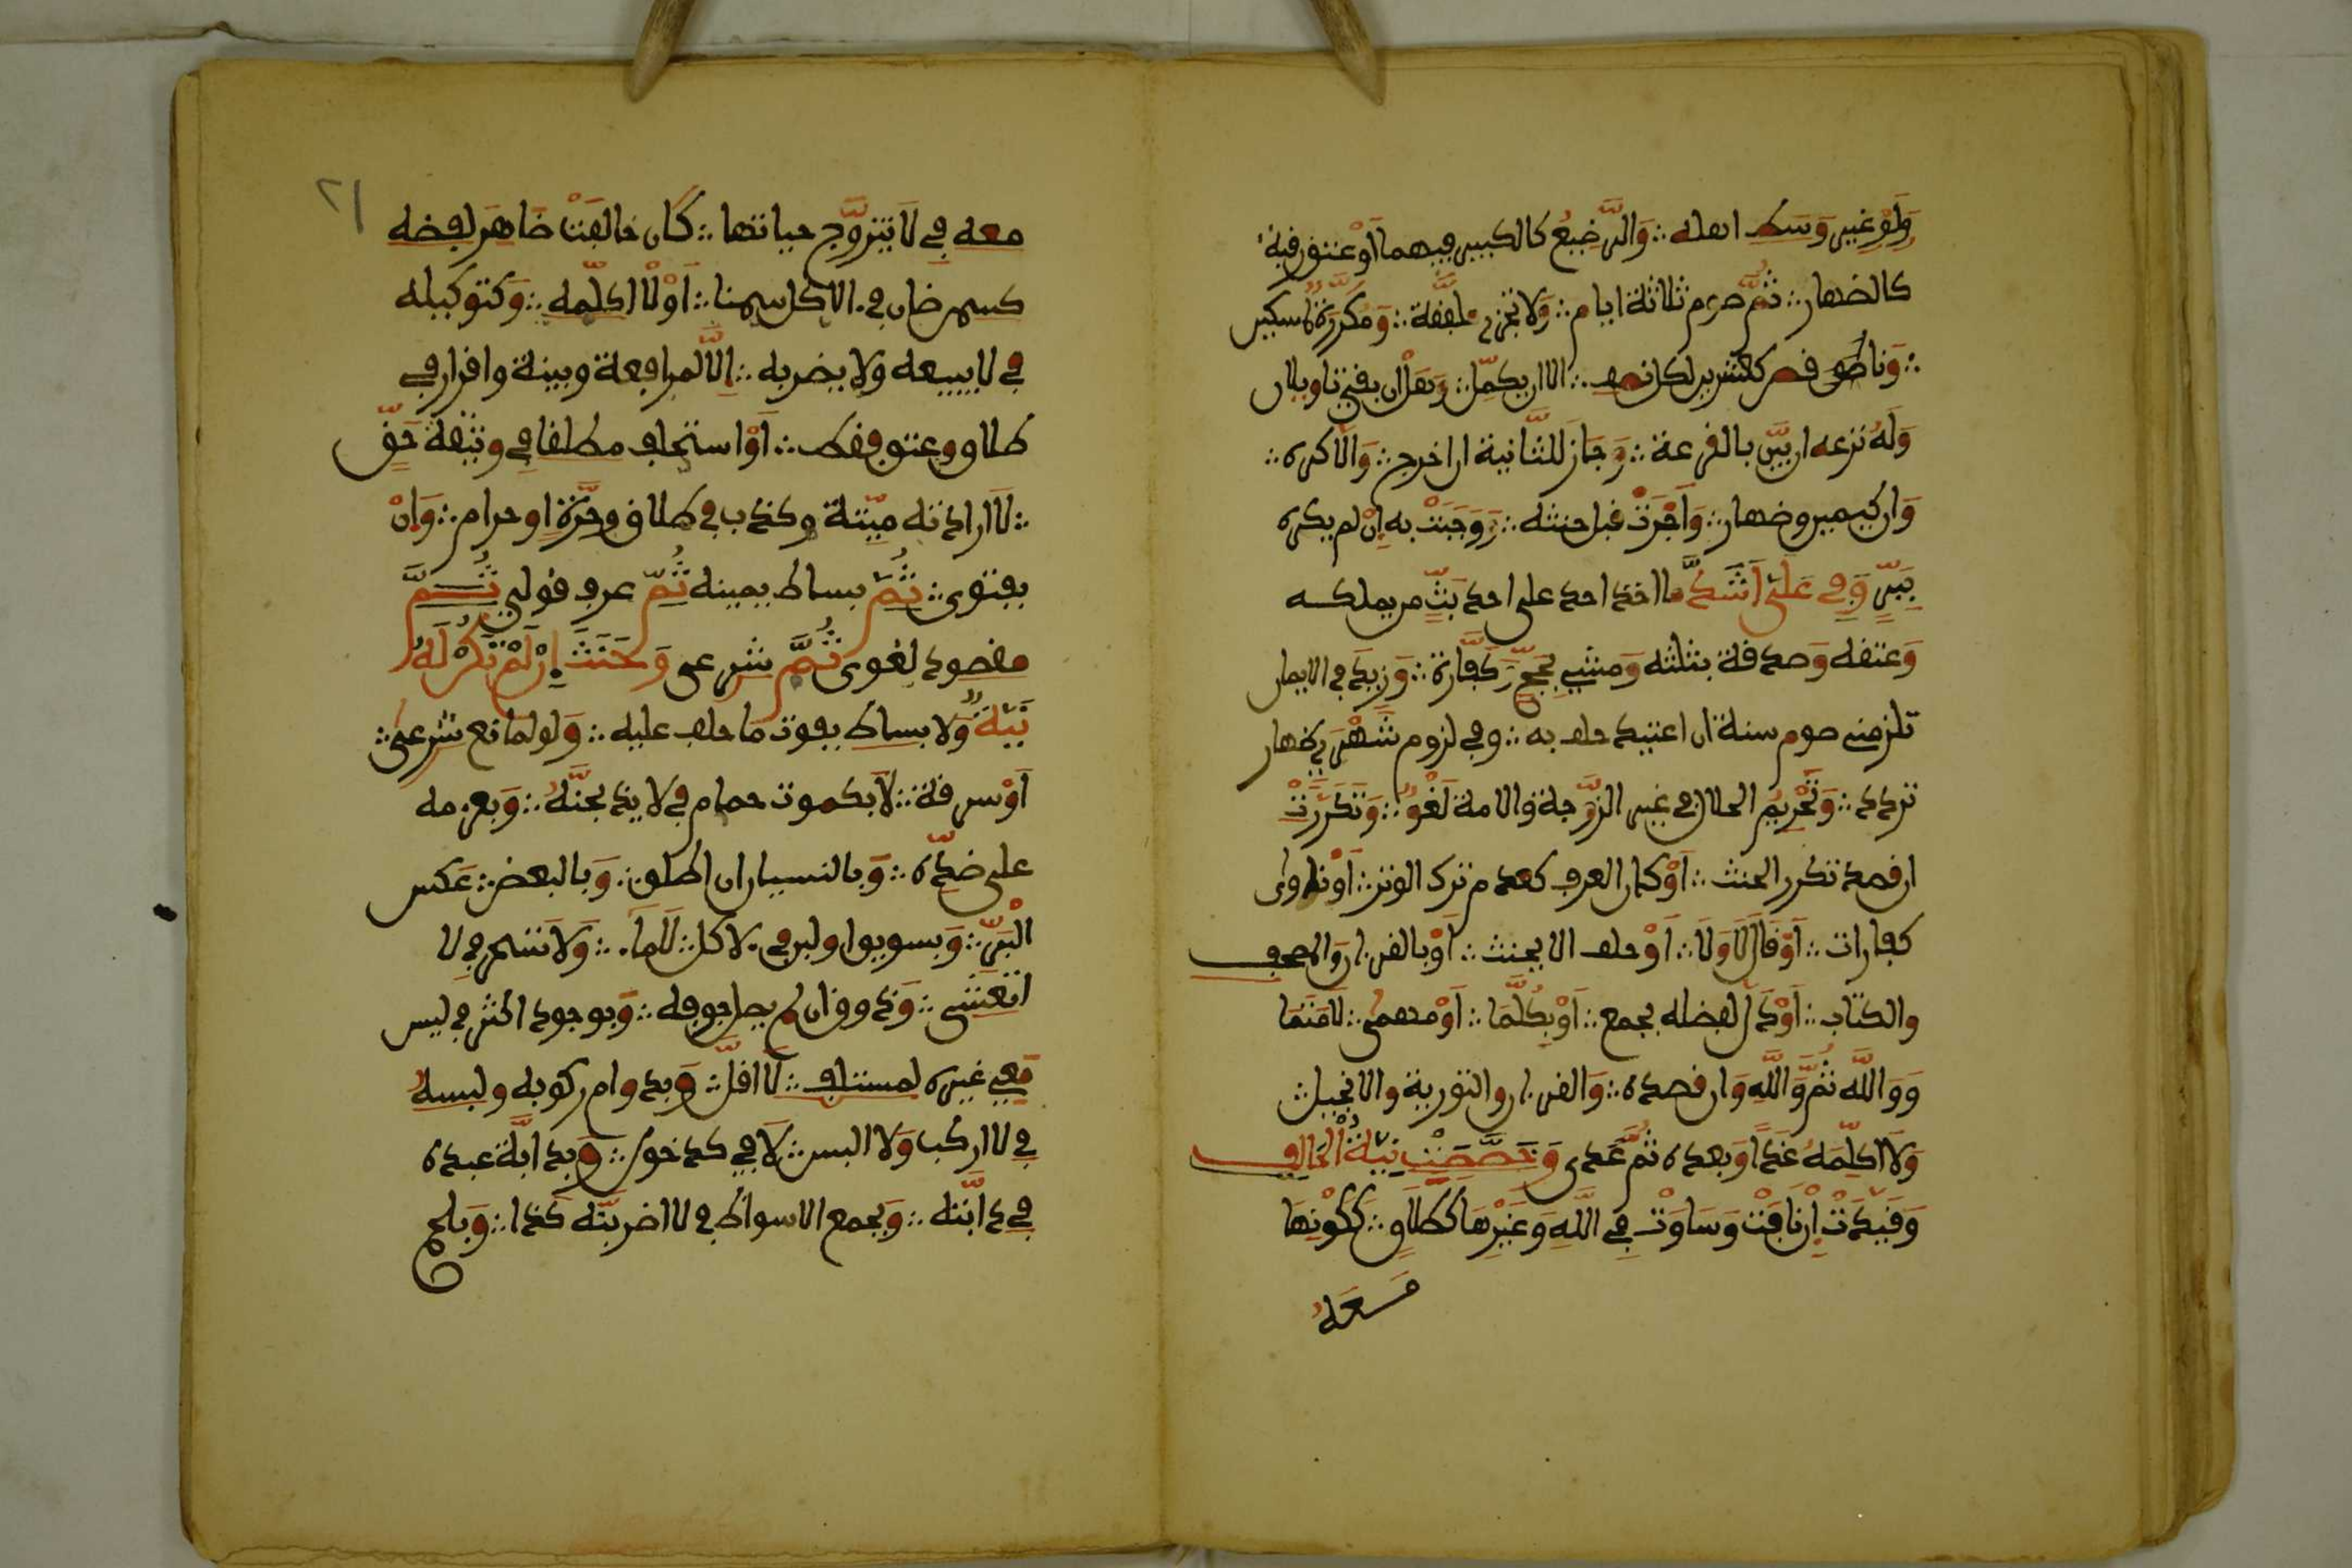 وَلَوْ غير وسط اهله ∴ وَالرَّضيعُ كالكبير فيهما أَوْ عتق رقبة
كالظهار ∴ ثُمَّ صوم ثلاثة ايام ∴ وَلا تجزى ملفقة ∴ وَمُكَرَّرَةٌ لمسكين
∴ وَناقص كعشرين لكل نصف ∴ الا ان يكمّل ∴ وَهَلْ ان بقي تاويلان
وَلَهُ نزعه ان بَيَّنَ بالقرعة ∴ وَجَازَ لِلثَّانية ان اخرج ∴ وَالاَّ كره ∴
وَان كيمين وظهار ∴ وَأَجْزَتْ قبل حنثه ∴ وَوَجَبَتْ به إِنْ لم يكره
بِبَرٍّ وَفِي عَلَيَّ أَشَدُّ ما اخذ احد على احد بَتُّ من يملكه
وَعتقه وَصدقة بثلثه وَمشي بِحَجٍّ وَكَفَّارة ∴ وَزِيدَ في الايمان
تلزمني صوم سنة ان اعتيد حلف به ∴ وفي لزوم شَهْرَي ظهار
تردد ∴ وَتَحْرِيمُ الحلال في غير الزَّوجة والامة لَغْوٌ ∴ وَتَكَرَّرَتْ
ان قصد تكرر الحنث ∴ أَوْ كان العرف كعدم ترك الوتر ∴ أَوْ نوى
كفارات ∴ أَوْ قَالَ لاَ وَلاَ ∴ أَوْ حلف الا يحنث ∴ أَوْ بالقران والمصحف
والكتاب ∴ أَوْ دَلَّ لفظه بجمع ∴ أَوْ بِكُلَّمَا ∴ أَوْ مهمى ∴ لاَ مَتَمَا
وَوَ اللَّه ثُمَّ وَاللَّهِ وَان قصده ∴ وَالقران والتورية والانجيل
وَلاَ اكلّمهُ غَدًا وَبعده ثُمَّ غَدى وَخَصَّصَتْ نِيَّةُ الْحَالِف
وَقَيَّدَتْ إِنْ نَافَتْ وَسَاوَتْ فِي اللَّهِ وَغَيْرِهَا كَطَلاَقٍ ∴ كَكَوْنِهَا
مَعَهُ
٢١
معه في لاَ يتزوَّج حياتها ∴ كَأن خالفَتْ ظَاهر لفظه
كسمن ضان في لا اكل سمنا ∴ أَوْ لاَ اكلّمه ∴ وَكتوكيله
في لا يبيعه ولا يضربه ∴ إِلاَّ لمرافعة وبينة واقرار في
طلاق وعتق فقط ∴ أَوْ استحلف مطلقا في وثيقة حَقٍّ
∴ لاَ ارادة ميّتة وكذب في طلاق وحُرَّةٍ او حرام ∴ وَإِنْ
بفتوى ∴ ثُمَّ بساط يمينه ثُمَّ عرف قولي ثُمَّ
مقصود لغوى ثُمَّ شرعى وَحَنَثَ إِنْ لَمْ تَكُنْ لَهُ
نِيَّةٌ وَلا بساط بفوت ما حلف عليه ∴ وَلو لمانع شرعى ∴
أَوْ سرقة ∴ لاَ بكموت حمام في لا يذبحنَّهُ ∴ وَبعزمه
على ضِدّه ∴ وَبالنسيان ان اطلق ∴ وَبالبعض ∴ عَكس
الْبِرِّ ∴ وَبسويق او لبن في لا اكل ∴ لاَ ماء ∴ وَلا تسحر في لا
اتعشى ∴ وَذوق ان لم يصل جوفه ∴ وَبوجود اكثر في ليس
مَعِي غيره لمتسلف ∴ لاَ اقلّ ∴ وَبدوام ركوبه ولبسه
في لا اركب وَلا البس ∴ لاَ في كدخول ∴ وَبدابَّة عبده
في دابَّته ∴ وَبجمع الاسواط في لا اضربنّه كذا ∴ وَبلحم